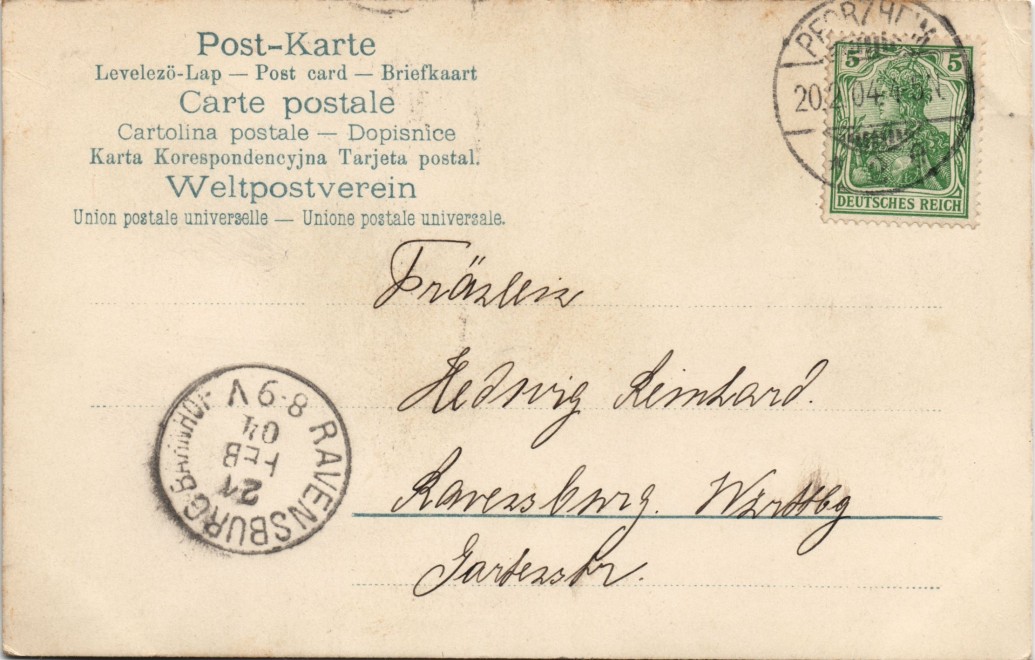 Post-Karte
Levelezö-Lap — Post card — Briefkaart
Carte postale
Cartolina postale — Dopisnice
Karta Korespondencyjna Tarjeta postal.
Weltpostverein
Union postale universelle — Unione postale universale.
PFORZHEIM
20.2.04.4-5N
5 5
DEUTSCHES REICH
Fräulein
Hedwig Reinhard.
Ravensburg. Württbg
Gartenstr.
RAVENSBURG BAHNHOF
21
FEB
04
6-8 V